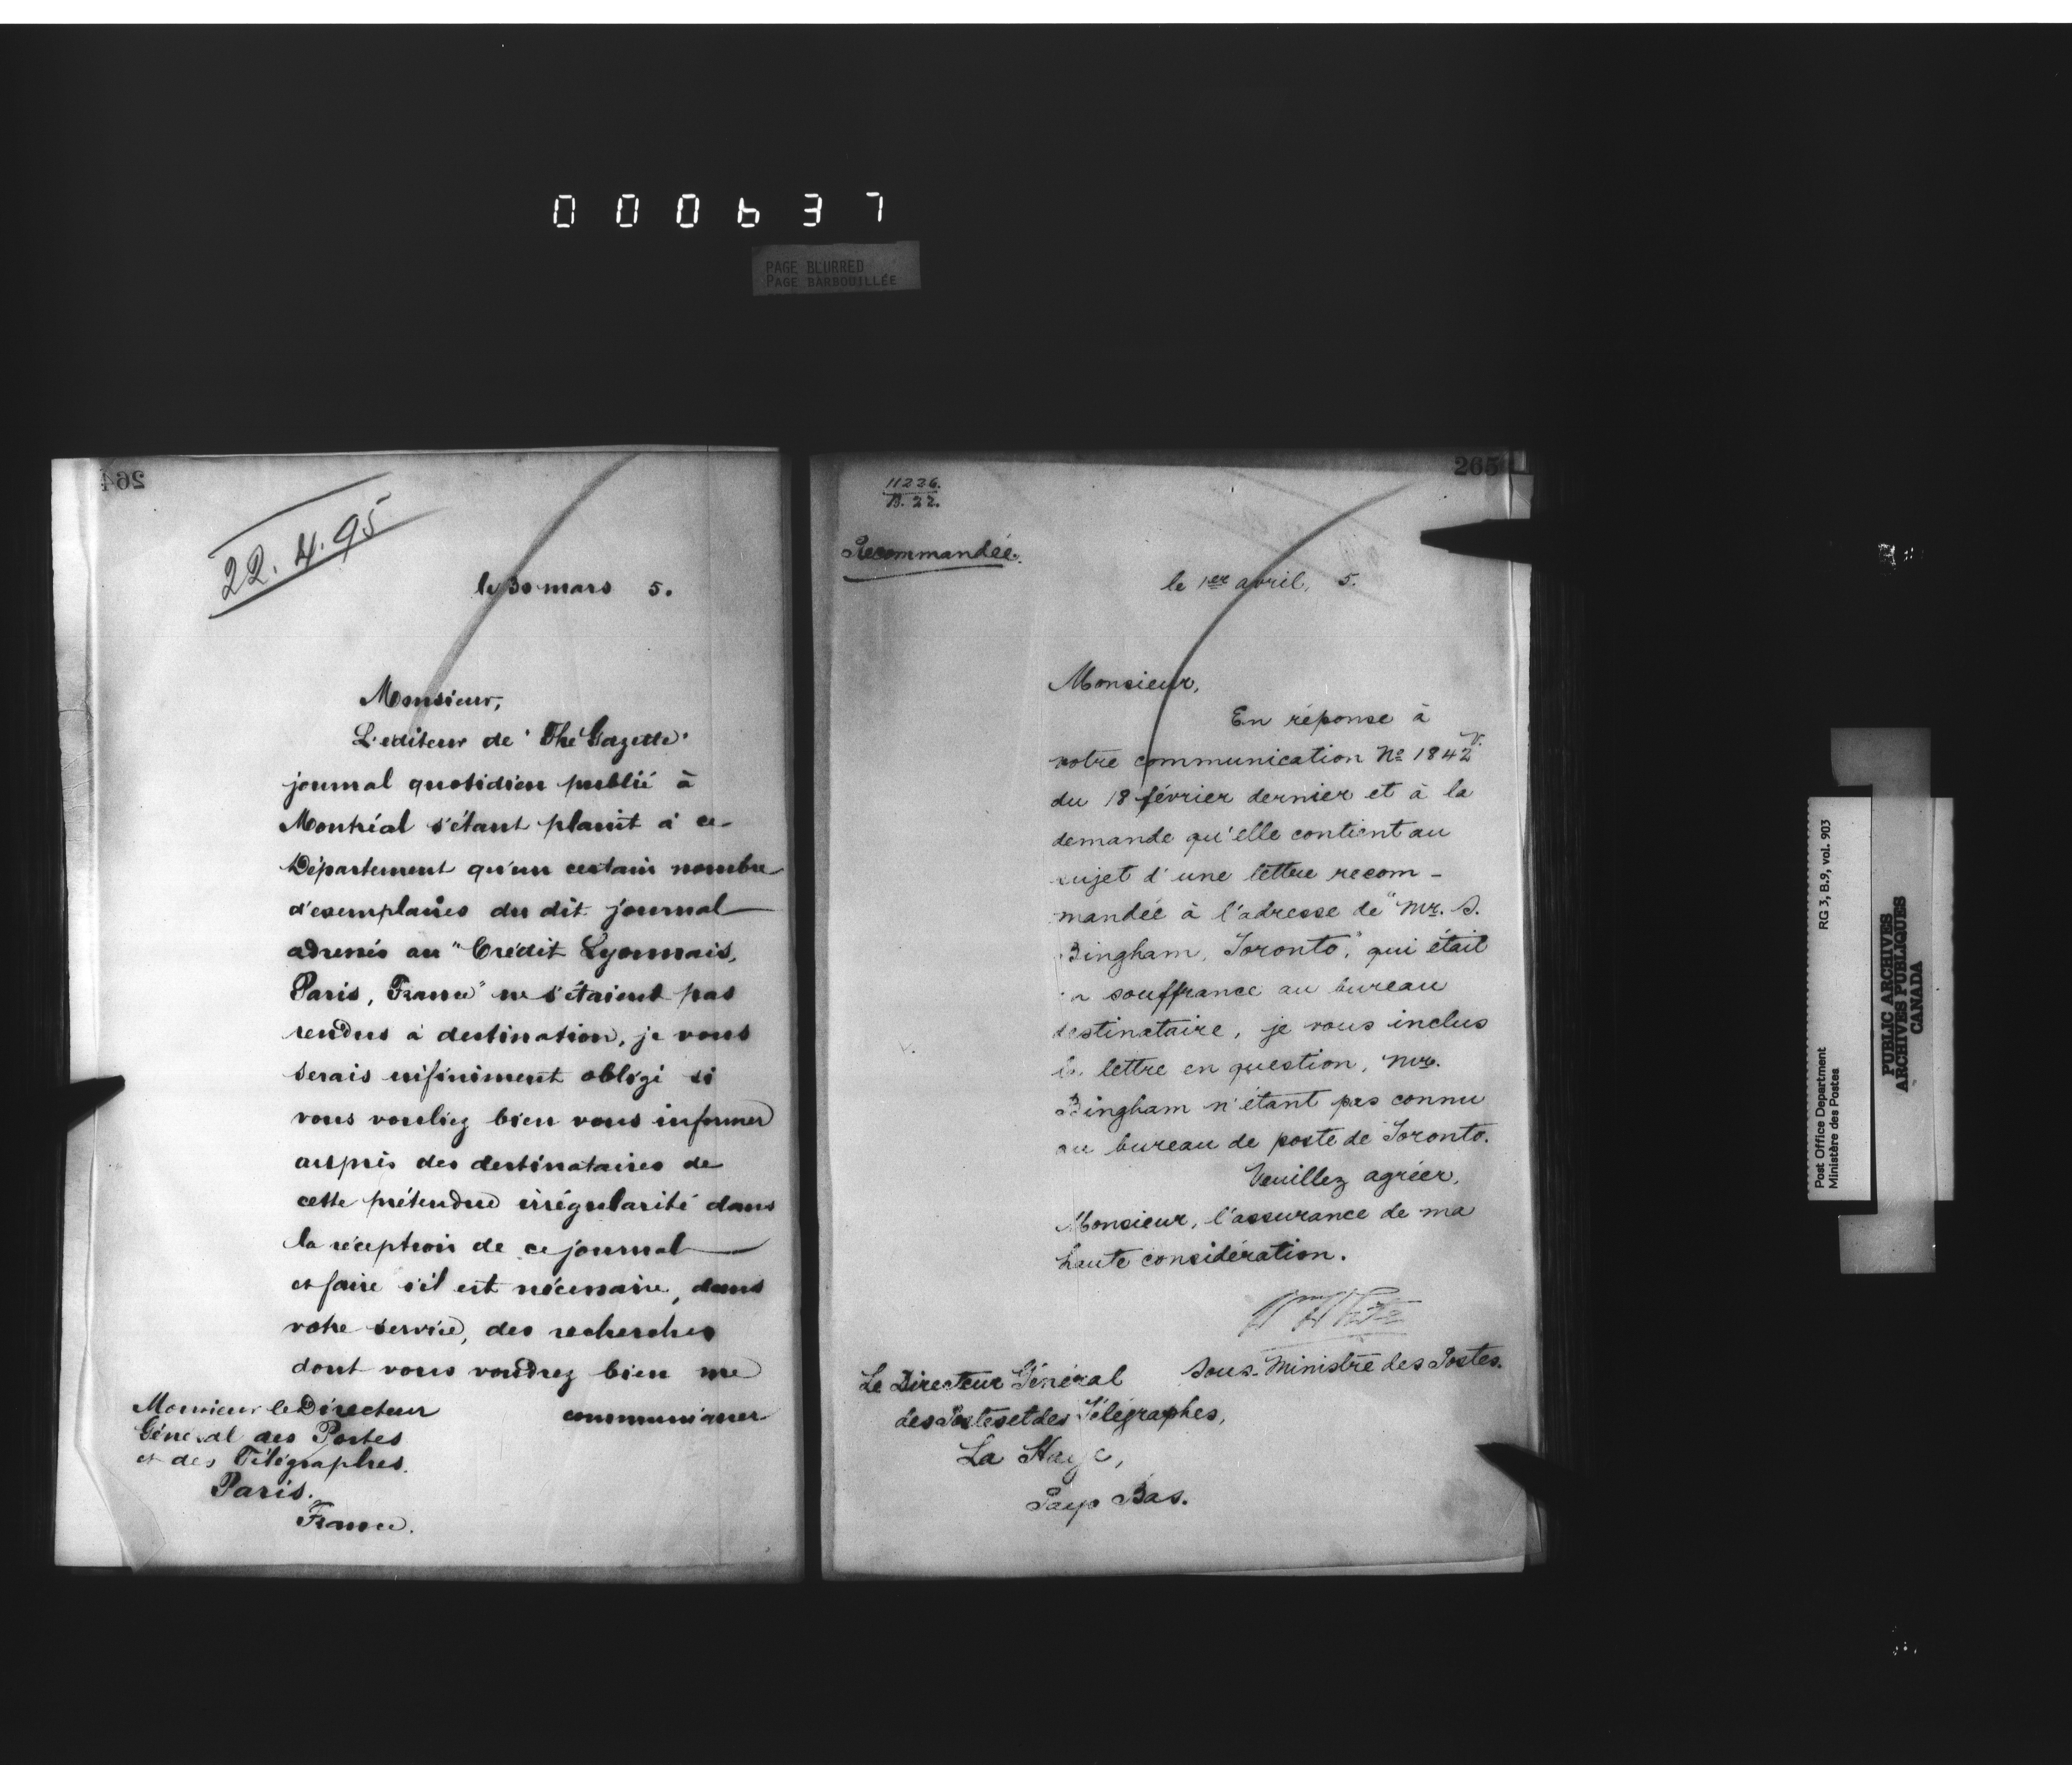 000637
PAGE BLURRED
PAGE BARBOUILLÉE
264
22.4.95
le 30 mars 5.
Monsieur,
L'editeur de "The Gazette"
journal quotidien publié à
Montréal s'étant plaint à ce
Département qu'un certain nombre
d'exemplaires du dit journal
adressés au "Crédit Lyonnais,
Paris, France" ne s'étaient pas
rendus à destination, je vous
serais infiniment obligé si
vous vouliez bien vous informer
auprès des destinataires de
cette prétendue irrégularité dans
la réception de ce journal
et faire s'il est nécessaire, dans
votre service, des recherches
dont vous voudrez bien me
communiquer
Monsieur le Directeur
Général des Postes
et des Télégraphes.
Paris.
France.
265
11236.
B. 22.
Recommandée.
le 1er avril, 5.
Monsieur,
En réponse à
votre communication No 1842 V.
du 18 février dernier et à la
demande qu'elle contient au
sujet d'une lettre recom-
mandée à l'adresse de "Mr. S.
Bingham, Toronto," qui était
en souffrance au bureau
destinataire, je vous inclus
la lettre en question, Mr.
Bingham n'étant pas connu
au bureau de poste de Toronto.
Veuillez agréer,
Monsieur, l'assurance de ma
haute considération.
Wm White
Sous-Ministre des Postes.
Le Directeur Général
des Postes et des Télégraphes,
La Haye,
Pays Bas.
Post Office Department RG 3, B.9, vol. 903
Ministère des Postes
PUBLIC ARCHIVES
ARCHIVES PUBLIQUES
CANADA